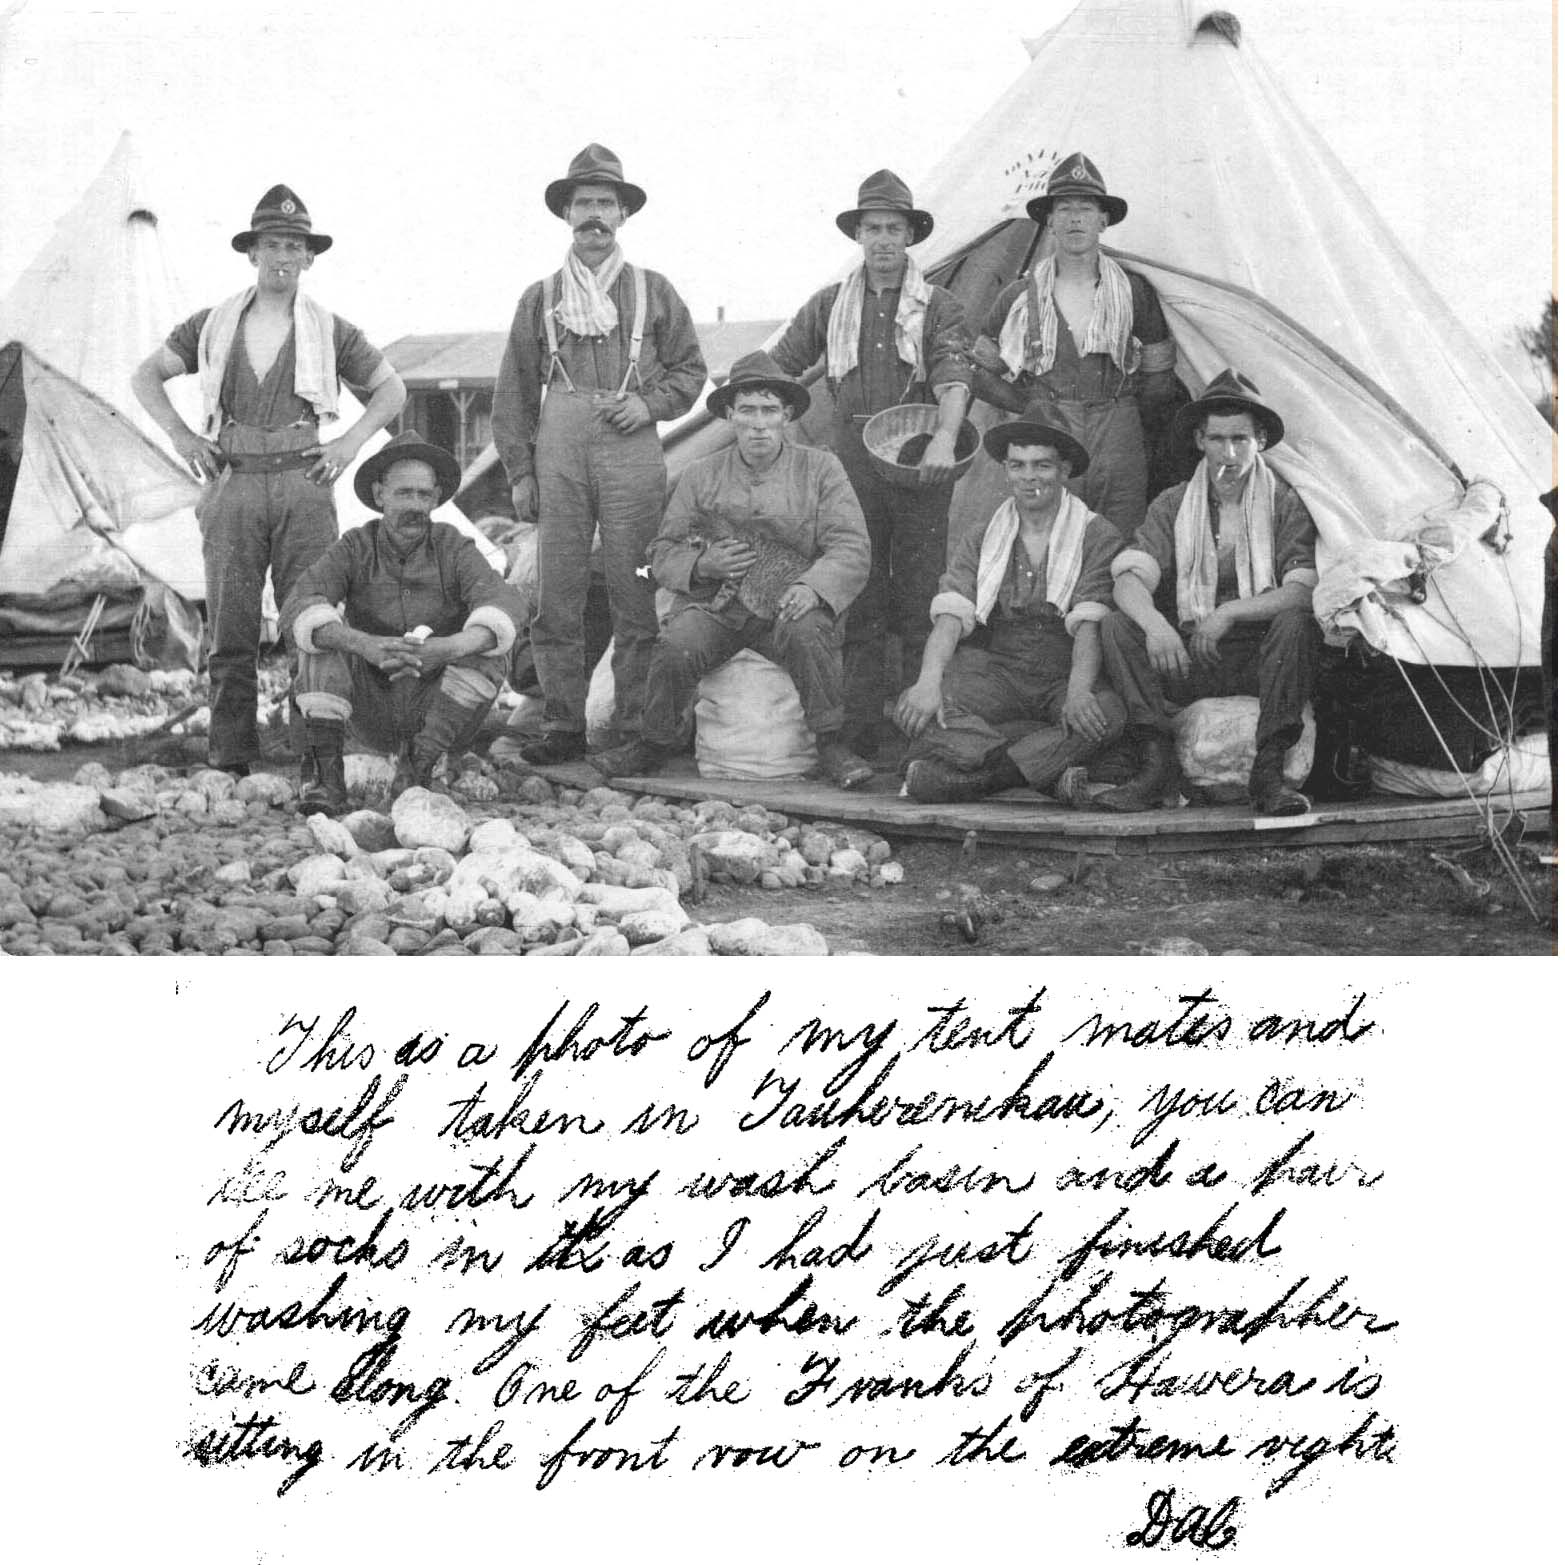 This is a photo of my tent mates and
myself taken in Tauherenikau, you can
see me with my wash basin and a pair
of socks in it as I had just finished
washing my feet when the photographer
came along. One of the Franks of Hawera is
sitting in the front row on the extreme right